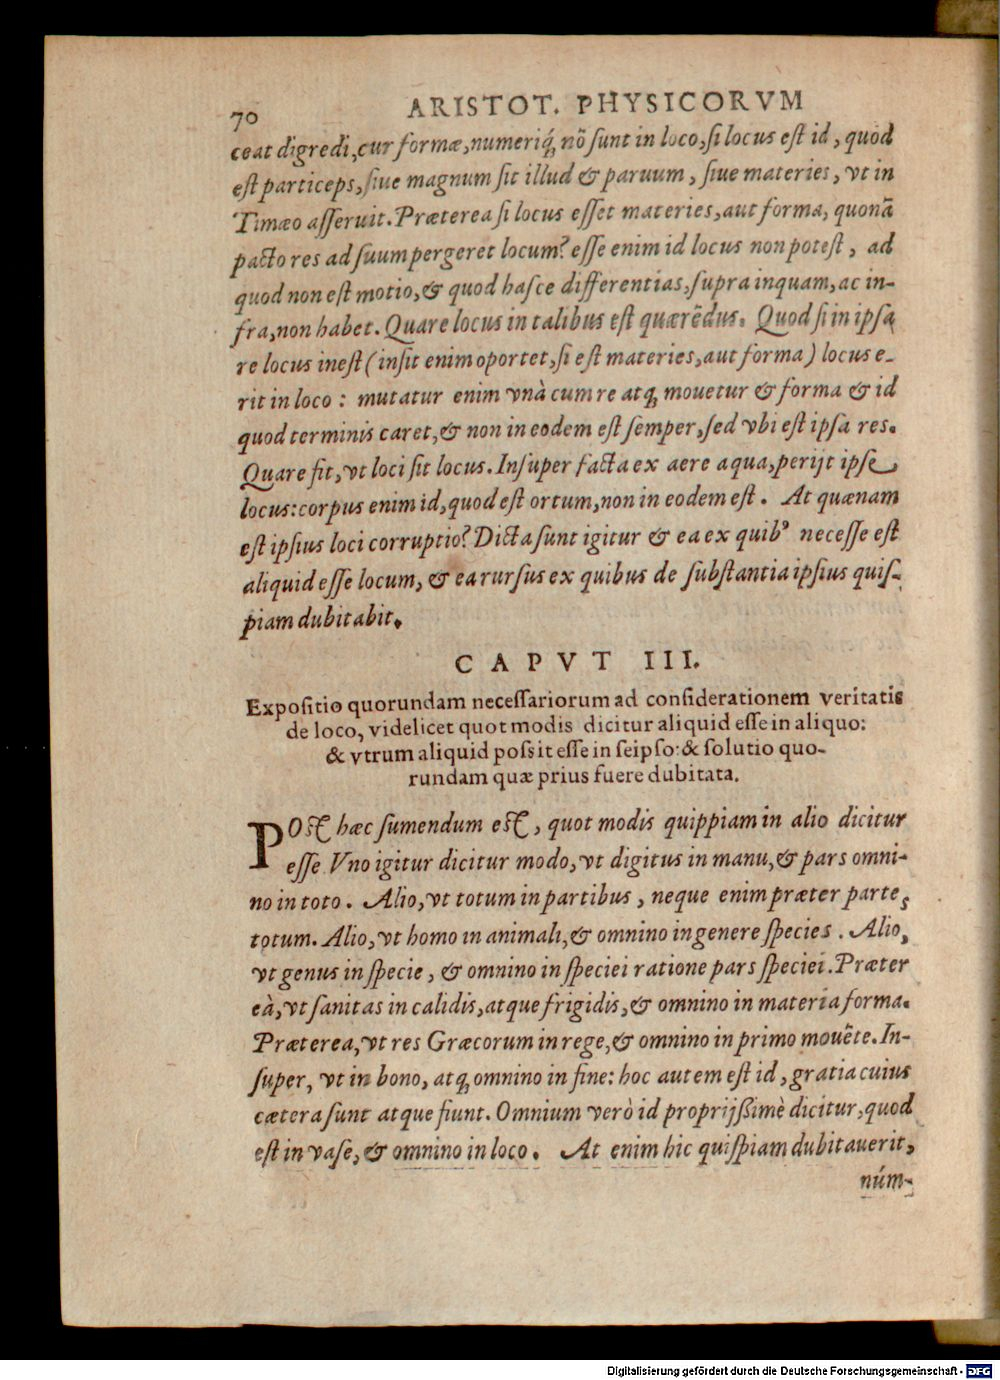 70 ARISTOT. PHYSICORVM
ceat digredi, cur formæ, numeriq́ꝫ nō sunt in loco, si locus est id, quod
est particeps, siue magnum sit illud & paruum, siue materies, vt in
Timæo asseruit. Præterea si locus esset materies, aut forma, quonā
pacto res ad suum pergeret locum? esse enim id locus non potest, ad
quod non est motio, & quod hasce differentias, supra inquam, ac in-
fra, non habet. Quare locus in talibus est quærēdus. Quod si in ipsa
re locus inest (insit enim oportet, si est materies, aut forma) locus e-
rit in loco: mutatur enim vnà cum re atqꝫ mouetur & forma & id
quod terminis caret, & non in eodem est semper, sed vbi est ipsa res.
Quare fit, vt loci sit locus. Insuper facta ex aere aqua, perijt ipse
locus: corpus enim id, quod est ortum, non in eodem est. At quænam
est ipsius loci corruptio? Dicta sunt igitur & ea ex quibꝰ necesse est
aliquid esse locum, & ea rursus ex quibus de substantia ipsius quis-
piam dubitabit.
CAPVT III.
Expositio quorundam necessariorum ad considerationem veritatis
de loco, videlicet quot modis dicitur aliquid esse in aliquo:
& vtrum aliquid possit esse in seipso: & solutio quo-
rundam quæ prius fuere dubitata.
POst hæc sumendum est, quot modis quippiam in alio dicitur
esse. Vno igitur dicitur modo, vt digitus in manu, & pars omni-
no in toto. Alio, vt totum in partibus, neque enim præter partes
totum. Alio, vt homo in animali, & omnino in genere species. Alio,
vt genus in specie, & omnino in speciei ratione pars speciei. Præter
eà, vt sanitas in calidis, atque frigidis, & omnino in materia forma.
Præterea, vt res Græcorum in rege, & omnino in primo mouēte. In-
super, vt in bono, atqꝫ omnino in fine: hoc autem est id, gratia cuius
cætera sunt atque fiunt. Omnium verò id proprijssimè dicitur, quod
est in vase, & omnino in loco. At enim hic quispiam dubitauerit,
núm-
Digitalisierung gefördert durch die Deutsche Forschungsgemeinschaft - DFG